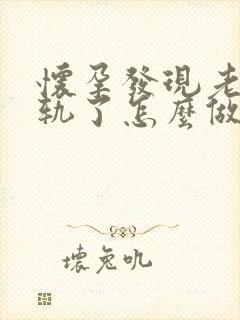 懷孕發現老
軌了怎麼做
壞兔吼